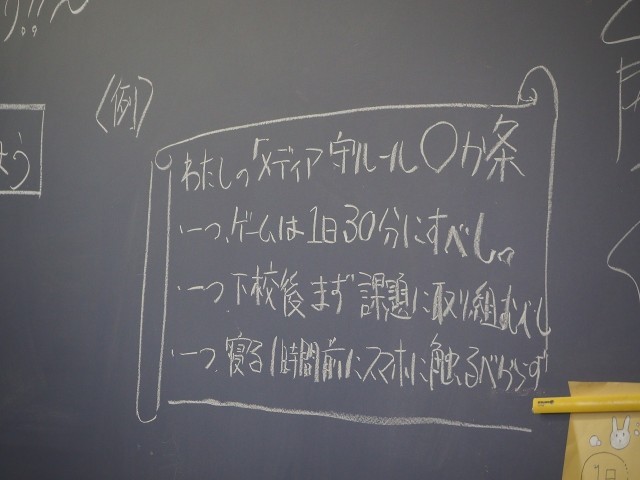 〈例〉
わたしの「メディア守ルール○か条
・一つ、ゲームは1日30分にすべし。
・一つ、下校後まず課題に取り組むべし
・一つ、寝る1時間前にスマホに触るべからず
よう
1日